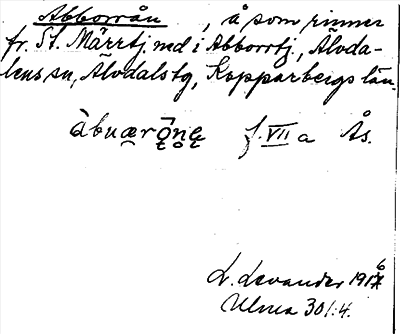 Abborrån, å som rinner
fr. St. Märrtj. ned i Abborrtj., Älvda-
lens sn, Älvdals tg, Kopparbergs län.
àbuær f. VII a Ås.
L. Levander 1916
Ulma 301:4.